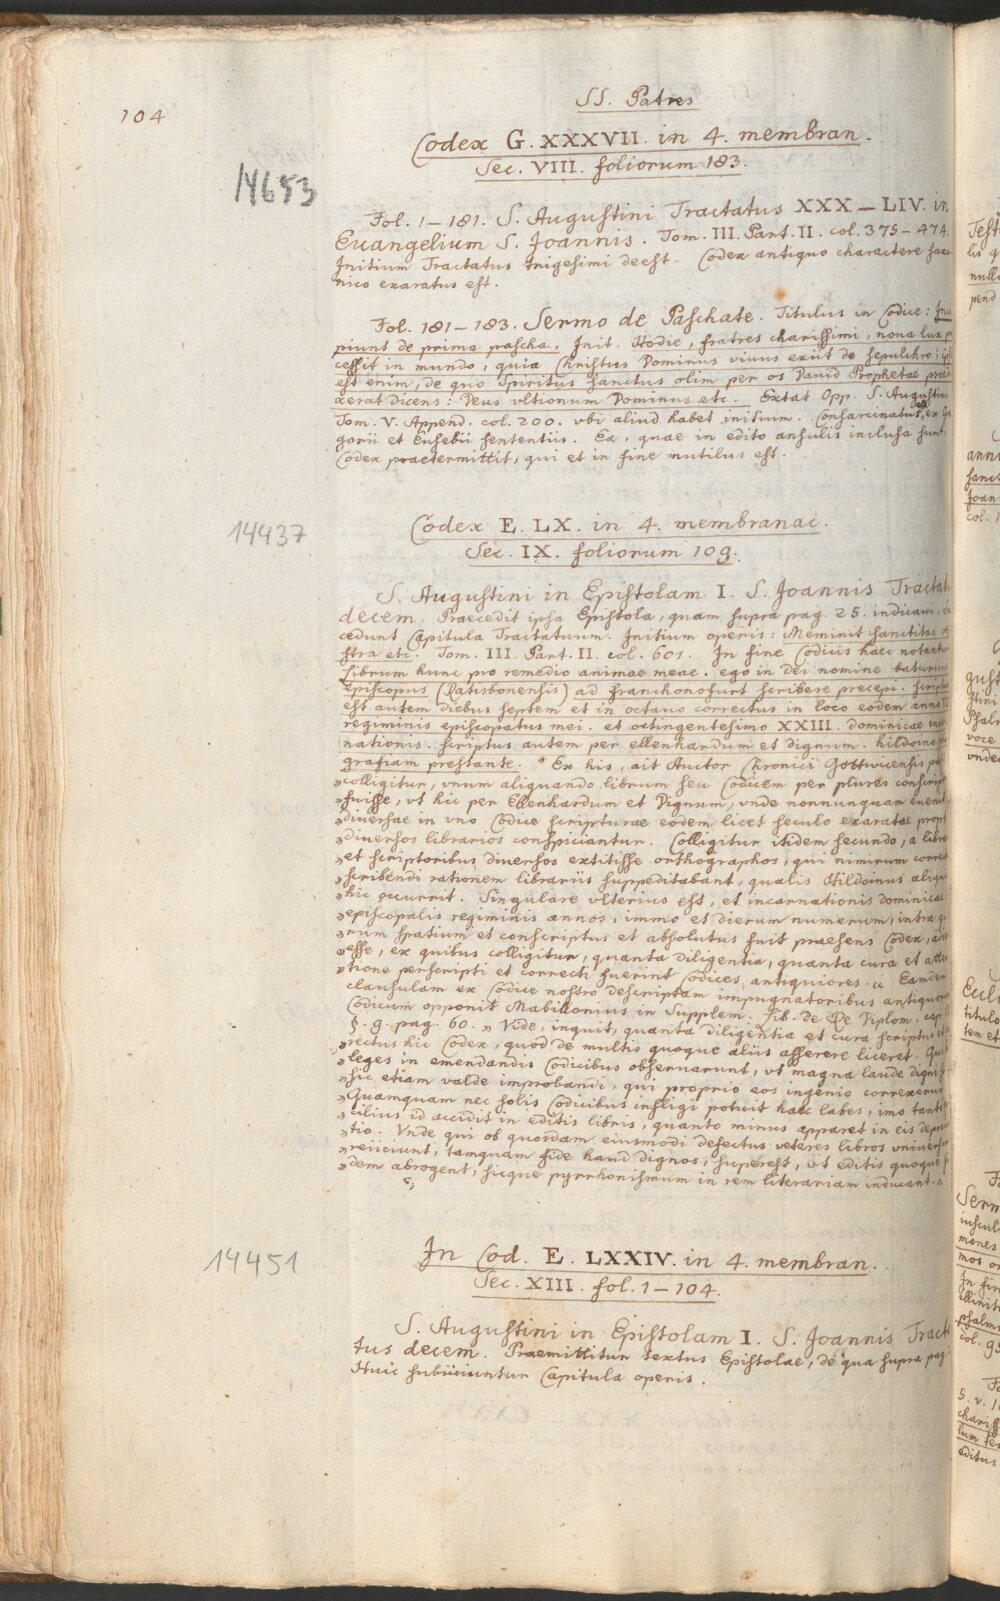 104
SS. Patres
Codex G. XXXVII. in 4. membran.
Sec. VIII. foliorum 183.
14653
Fol. 1-181. S. Augustini Tractatus XXX-LIV. in
Euangelium S. Joannis. Tom. III. Part. II. col. 375-474.
Initium Tractatus trigesimi deest. Codex antiquo charactere saxo-
nico exaratus est.
Fol. 181-183. Sermo de Paschate. Titulus in Codice: Inci
piunt de prima pascha. Init. Hodie, fratres charissimi, noua lux
cessit in mundo, quia Christus Dominus viuus exiit de sepulchro; ips
est enim, de quo Spiritus sanctus olim per os Dauid Prophetae prae
xerat dicens: Deus vltionum Dominus etc. Extat Opp. S. Augustini
Tom. V. Append. col. 200. vbi aliud habet initium. Consarcinatus est, ex
gorii et Eusebii sententiis. Ea, quae in edito ansulis inclusa sunt,
Codex praetermittit, qui et in fine mutilus est.
14437
Codex E. LX. in 4. membranac.
Sec. IX. foliorum 109.
S. Augustini in Epistolam I. S. Joannis Tractat
decem. Praecedit ipsa Epistola, quam supra pag. 25. indicaui.
cedunt Capitula Tractatuum. Initium operis: Meminit sanctitas ve
stra etc. Tom. III. Part. II. col. 601. In fine Codicis haec notantur
Librum hunc pro remedio animae meae. ego in dei nomine baturicus
episcopus (Ratisbonensis) ad franchonofurt scribere precepi. scriptus
est autem diebus septem et in octauo correctus in loco eodem anno
regiminis episcopatus mei. et octingentesimo XXIII. dominicae incar
nationis. scriptus autem per ellenhardum et dignum. hildoino
grafiam prestante. Ex his, ait Auctor Chronici Gottwicensis
„colligitur, vnum aliquando librum seu Codicem per plures conscrip
„fuisse, vt hic per Ellenhardum et Dignum, vnde nonnunquam euenit
„diuersae in vno Codice scripturae eodem licet seculo exaratae propt
„diuersos librarios conspiciantur. Colligitur itidem secundo, a libra
„et scriptoribus diuersos extitisse orthographos, qui nimirum correct
„scribendi rationem librariis suppeditabant, qualis Hildoinus aliqu
„hic occurrit. Singulare vlterius est, et incarnationis dominicae
„episcopalis regiminis annos, immo et dierum numerum, intra q
„rum spatium et conscriptus et absolutus fuit praesens Codex, ad
„esse, ex quibus colligitur, quanta diligentia, quanta cura et atten
„tione perscripti et correcti fuerint Codices antiquiores." Eamdem
clausulam ex Codice nostro descriptam impugnatoribus antiquorum
Codicum opponit Mabillonius in Supplem. Lib. de Re Diplom. cap.
§. 9. pag. 60. „Vide, inquit, quanta diligentia et cura scriptus et
„rectus hic Codex, quod de multis quoque aliis asserere liceret.
„leges in emendandis Codicibus obseruarunt, vt magna laude digni
„sic etiam valde improbandi, qui proprio eos ingenio correxerunt
„Quamquam nec solis Codicibus infligi potuit haec labes; imo tanto
„cilius id accidit in editis libris, quanto minus apparet in eis
„tio. Vnde qui ob quosdam eiusmodi defectus veteres libros vniuersim
„reiiciunt, tamquam fide haud dignos; superest, vt editis quoque
„dem abrogent, sicque pyrrhonismum in rem literariam inducant."
14451
In Cod. E. LXXIV. in 4. membran.
Sec. XIII. fol. 1-104.
S. Augustini in Epistolam I. S. Joannis Tracta
tus decem. Praemittitur textus Epistolae, de qua supra pag.
Huic subiiciuntur Capitula operis.